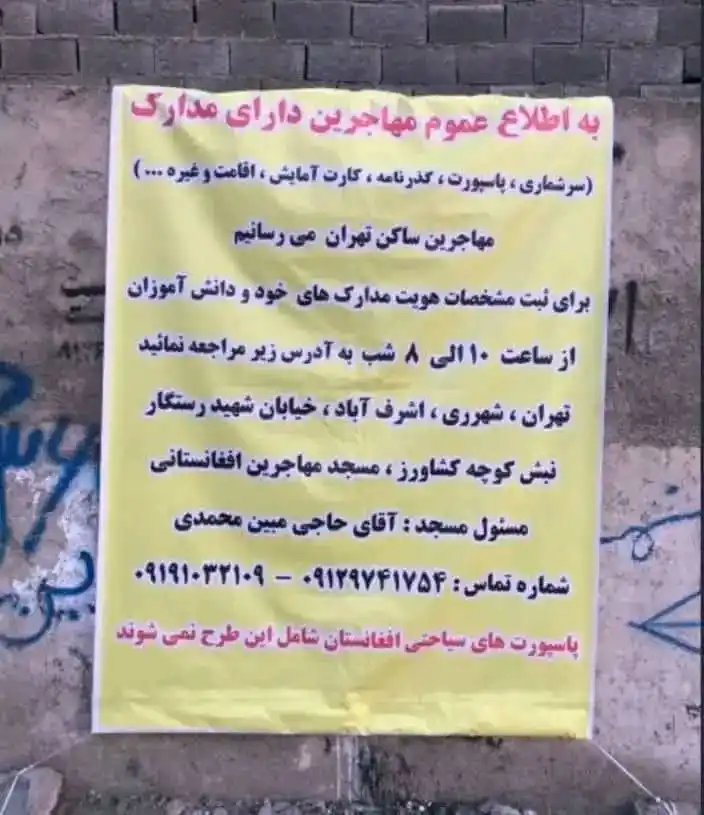 به اطلاع عموم مهاجرین دارای مدارک
(سرشماری ، پاسپورت ، گذرنامه ، کارت آمایش ، اقامت و غیره ...)
مهاجرین ساکن تهران می رسانیم
برای ثبت مشخصات هویت مدارک های خود و دانش آموزان
از ساعت ۱۰ الی ۸ شب به آدرس زیر مراجعه نمائید
تهران ، شهرری ، اشرف آباد ، خیابان شهید رستگار
نبش کوچه کشاورز ، مسجد مهاجرین افغانستانی
مسئول مسجد : آقای حاجی مبین محمدی
شماره تماس : ۰۹۱۲۹۷۴۱۷۵۴ - ۰۹۱۹۱۰۳۲۱۰۹
پاسپورت های سیاحتی افغانستان شامل این طرح نمی شوند